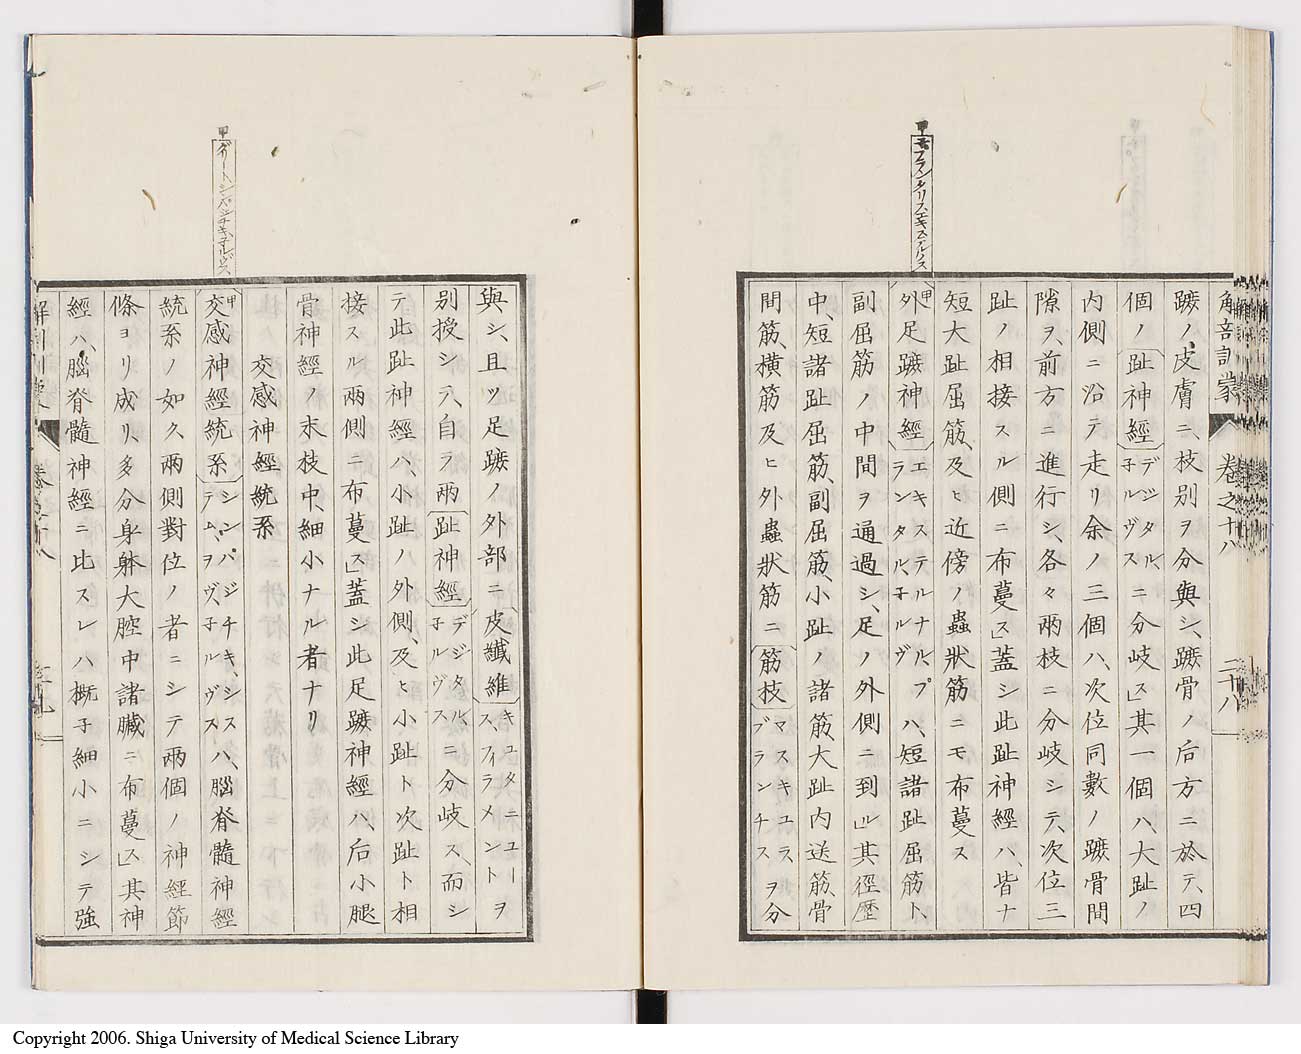 解剖訓蒙
卷之十八
二十八
蹠ノ、皮膚ニ、枝別ヲ分與シ、蹠骨ノ后方ニ於テ、四
個ノ趾神經デジタル、子ルヴスニ分岐ス」其一個ハ、大趾ノ
内側ニ沿テ走リ余ノ三個ハ、次位同數ノ蹠骨間
隙ヲ、前方ニ進行シ、各々兩枝ニ分岐シテ、次位三
趾ノ相接スル側ニ布蔓ス」蓋シ此趾神經ハ、皆ナ
短大趾屈筋、及ヒ近傍ノ蟲狀筋ニモ布蔓ス
甲外足蹠神經エキステルナル、プランタル、子ルヴハ、短諸趾屈筋ト、
副屈筋ノ中間ヲ通過シ、足ノ外側ニ到ル」其徑歴
中、短諸趾屈筋、副屈筋、小趾ノ諸筋、大趾内送筋、骨
間筋、橫筋及ヒ外蟲狀筋ニ筋枝マスキユラス、ブランチスヲ分
甲プランタリスエキステルリス
與シ、且ツ足蹠ノ外部ニ皮纖維キユタニユース、フイラメントヲ
別授シテ、自ラ兩趾神經デジタル、子ルヴスニ分岐ス、而シ
テ此趾神經ハ、小趾ノ外側、及ヒ小趾ト次趾ト相
接スル兩側ニ布蔓ス」蓋シ此足蹠神經ハ、后小腿
骨神經ノ末枝中、細小ナル者ナリ
交感神經統系
甲交感神經統系シンパジチキ、システム、ヲヴ、子ルヴスハ、腦脊髓神經
統系ノ如ク、兩側對位ノ者ニシテ兩個ノ神經節
條ヨリ成リ、多分身躰大腔中諸臟ニ布蔓ス」其神
經ハ、腦脊髓神經ニ比スレハ概子細小ニシテ強
解剖訓蒙